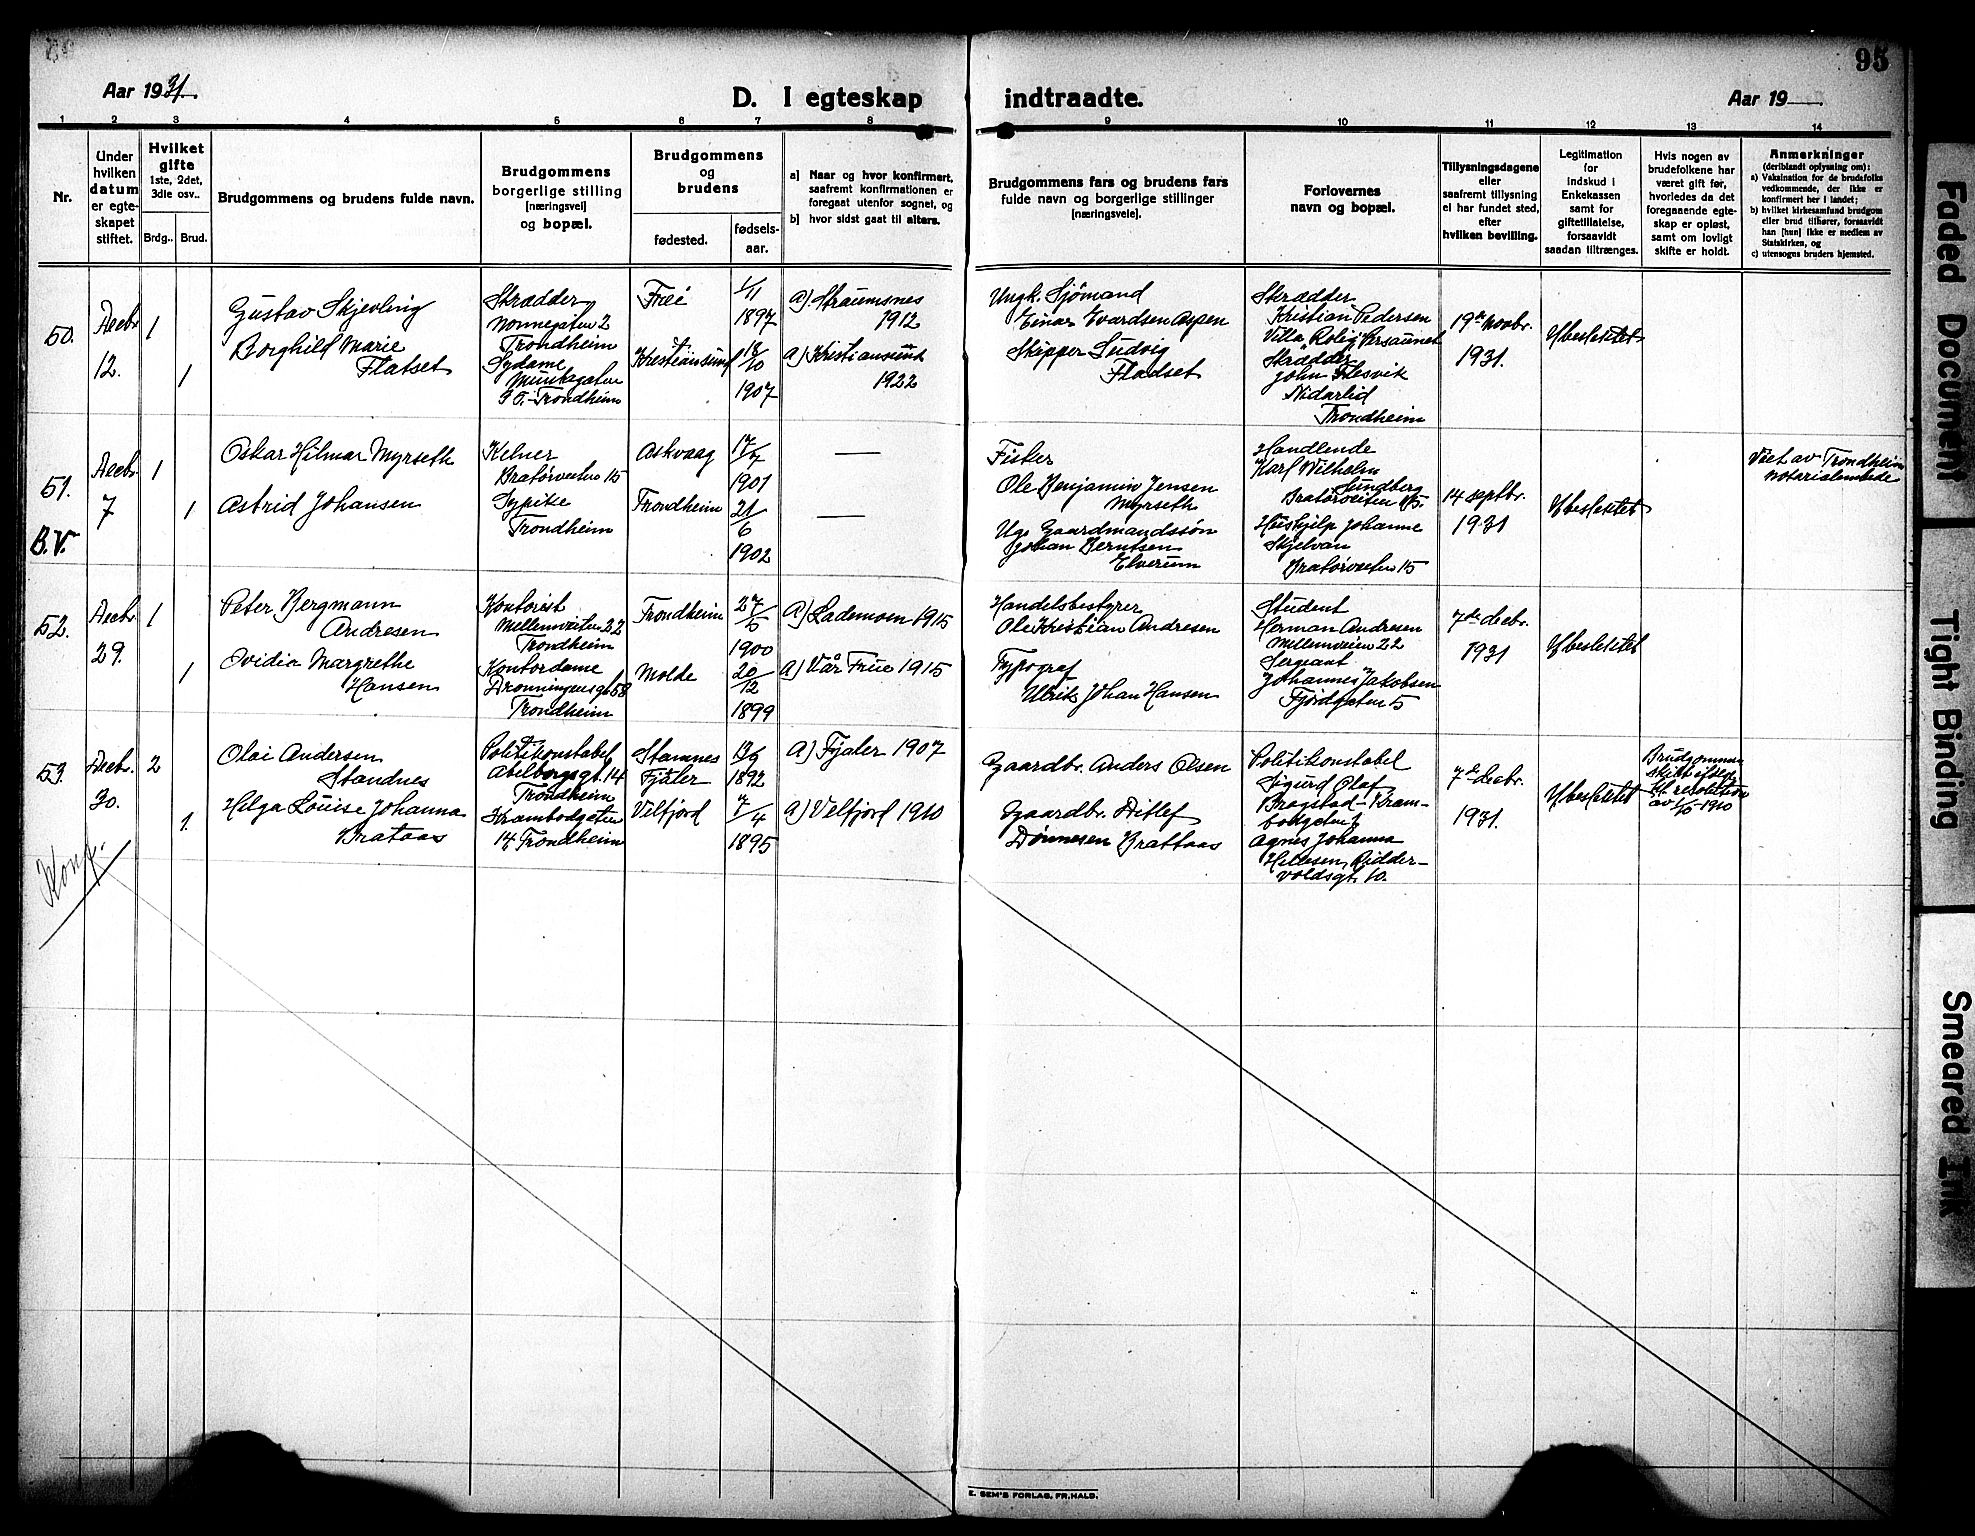 95
Aar 1931.
D. I egteskap indtraadte.
Aar 19
1 2 3 4 5 6 7 8 9 10 11 12 13 14
Nr.
Under hvilken datum er egteskapet stiftet.
Hvilket gifte 1ste, 2det, 3die osv..
Brdg.. Brud.
Brudgommens og brudens fulde navn.
Brudgommens borgerlige stilling [næringsvei] og bopæl.
Brudgommens og brudens
fødested.
fødsels-aar.
a) Naar og hvor konfirmert, saafremt konfirmationen er foregaat utenfor sognet, og
b) hvor sidst gaat til alters.
Brudgommens fars og brudens fars fulde navn og borgerlige stillinger [næringsveie].
Forlovernes navn og bopæl.
Tillysningsdagene eller saafremt tillysning ei har fundet sted, efter hvilken bevilling.
Legitimation for indskud i Enkekassen samt for giftetillatelse, forsaavidt saadan tiltrænges.
Hvis nogen av brudefolkene har været gift før, hvorledes da det foregaaende egteskap er opløst, samt om lovligt skifte er holdt.
Anmerkninger
(deriblandt oplysning om):
a) Vaksination for de brudefolks vedkommende, der ikke er konfirmert her i landet;
b) hvilket kirkesamfund brudgom eller brud tilhører, forsaavidt han [hun] ikke er medlem av Statskirken, og
c) utensogns bruders hjemsted.
50.
Decbr
12.
1
1
Gustav Skjevling
Borghild Marie
Flatset
Skrædder
Nonnegaten 2
Trondheim
Sydame
Munkegaten
Trondheim
Frei
Kristiansund
1/11
1897
18/10
1907
a). Straumsnes
1912
a) Kristiansund
1922
Ungk. Sjömand
Einar Evardsen Aspen
Skipper Ludvig
Fladset
Skrædder
Kristian Pedersen
Villa "Rolig" Persaunet
Skrædder
John Flesvik
Nidarlid
Trondheim
19de novbr.
1931.
Ubeslektet
51.
B.V.
Decbr
7
1
1
Oskar Hilmar Myrseth
Astrid Johansen
Kelner
Bratörveiten 15
Sypike
Trondheim
Askvaag
Trondheim
17/7
1901
21/6
1902
—
—
Fisker
Ole Benjamin Jensen
Myrseth
Ugs Gaardmandssön
Johan Berntsen
Elverum
Handlende
Karl Wilhelm
Sundberg
Bratörveiten 15.
Hushjelp Johanne
Skjelvan
Bratörveiten 15
14 septbr.
1931
Ubeslektet
Viet av Trondheim
Notarialembede
52.
Decbr
29.
1
1
Peter Bergmann
Andresen
Ovidia Margrethe
Hansen
Kontorist
Mellemveien 22
Trondheim
Kontordame
Dronningensgt 58
Trondheim
Trondheim
Molde
27/5
1900
20/12
1899
a) Lademoen 1915
a) Vår Frue 1915
Handelsbestyrer
Ole Kristian Andresen
Typograf
Ulrik Johan Hansen
Student
Herman Andresen
Mellemveien 22
Sergeant
Johannes Jakobsen
Fjordgaten 5
7de decbr.
1931
Ubeslektet
53.
Decbr.
30.
2
1.
Olai Andersen
Standnes
Helga Louise Johanna
Brataas
Politikonstabel
Abelborgsgt. 14
Trondheim
Krambodgaten
14 Trondheim
Stamnes
Fjaler
Velfjord
13/9
1892
7/4
1895
a) Fjaler 1907
a) Velfjord 1910
Gaardbr. Anders Olsen
Gaardbr. Ditlef
Dønnesen Brattaas
Politikonstabel
Sigurd Olaf
Bragstad - Kram-
bodgaten
Agnes Johanna
Hellesen, Ridder-
voldsgt. 10.
7de decbr.
1931.
Ubeslektet
Brudgommen
skilt ifölge
resolution
av
Konf.
E. SEM'S FORLAG, FR.HALD.
Faded Document
Tight Binding
Smeared Ink